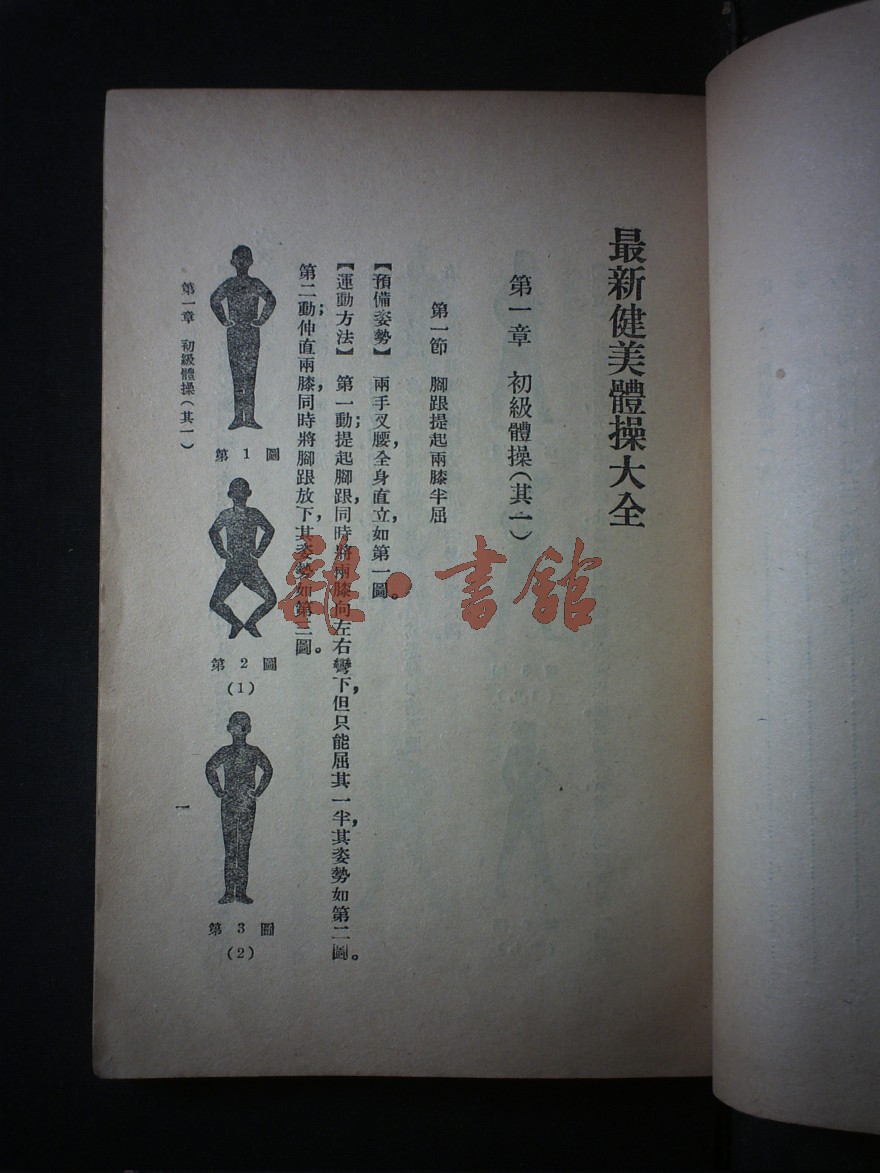 最新健美體操大全
第一章　初級體操(其一)
第一節　腳跟提起兩膝半屈
【預備姿勢】　兩手叉腰,全身直立,如第一圖。
【運動方法】　第一動;提起腳跟,同時將兩膝向左右彎下,但只能屈其一半,其姿勢如第二圖。
第二動;伸直兩膝,同時將腳跟放下,其姿勢如第三圖。
第1圖
第2圖
(1)
第3圖
(2)
第一章　初級體操(其一)
一
雜·書館